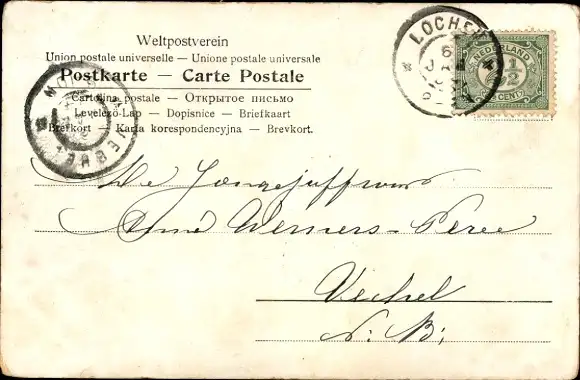 Weltpostverein
Union postale universelle — Unione postale universale
Postkarte — Carte Postale
Cartolina postale — Открытое письмо
Levelező-Lap — Dopisnice — Briefkaart
Brefkort — Karta korespondencyjna — Brevkort.
LOCHEM
6
NEDERLAND
2 1/2
CENT
De Jongejuffrouw
Anné Wemers-Peree
Vechel
N: B: